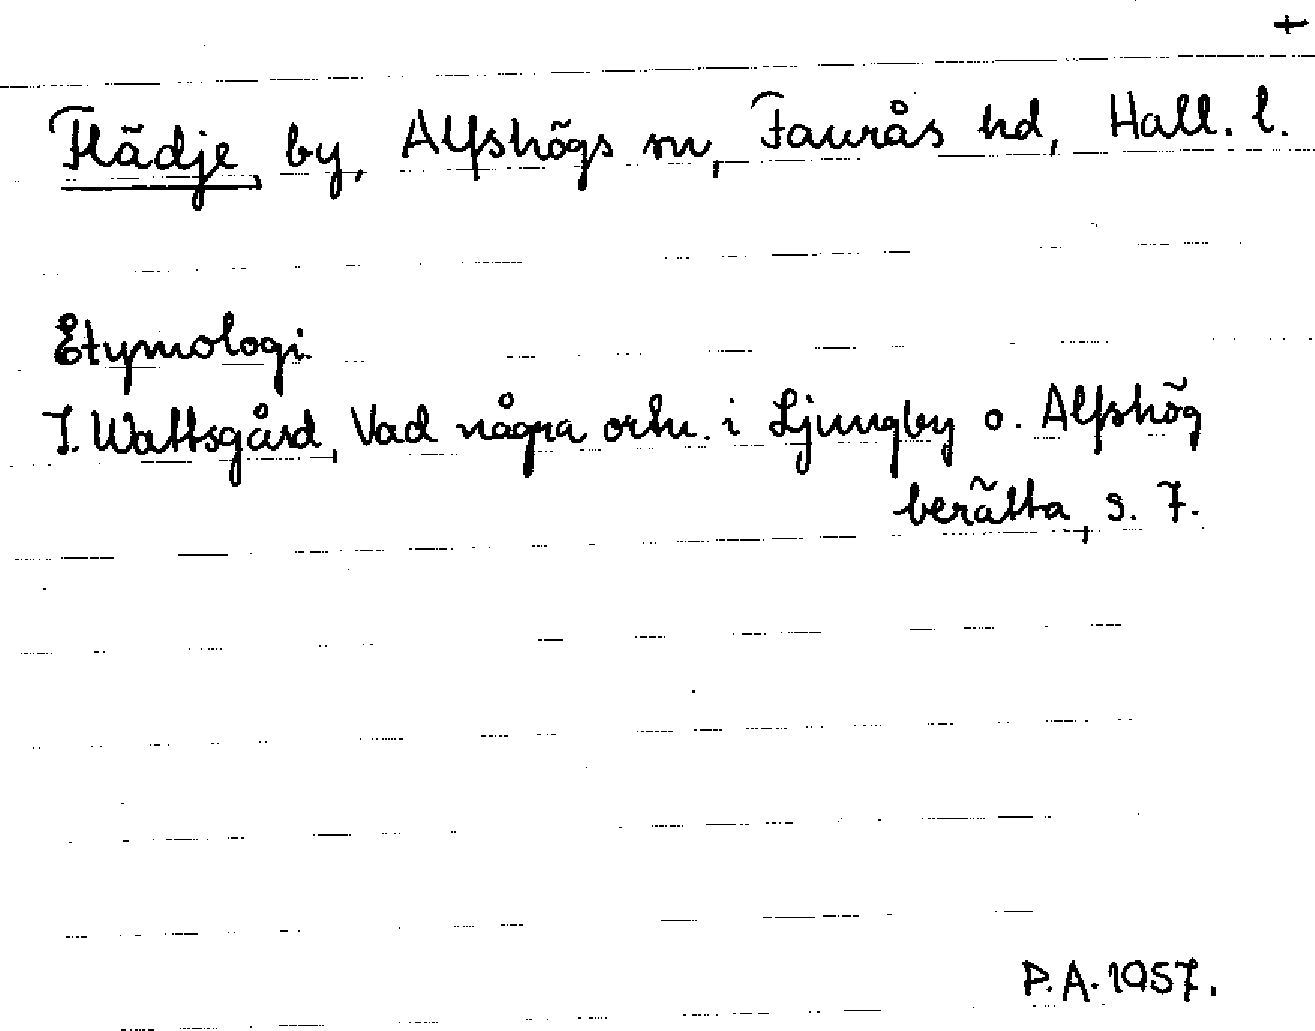 +
Flädje, by, Alfshögs sn, Faurås hd, Hall. l.
Etymologi
I. Wattsgård, Vad några ortn. i Ljungby o. Alfshög
berätta, s. 7.
P.A. 1957.